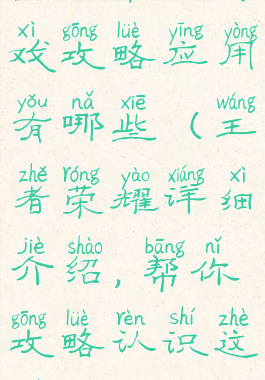 xì gōng lüè yīng yòng
戏攻略应用
yǒu nǎ xiē wáng
有哪些（王
zhě róng yào xiáng xì
者荣耀详细
jiè shào bāng nǐ
介绍，帮你
gōng lüè rèn shí zhè
攻略认识这